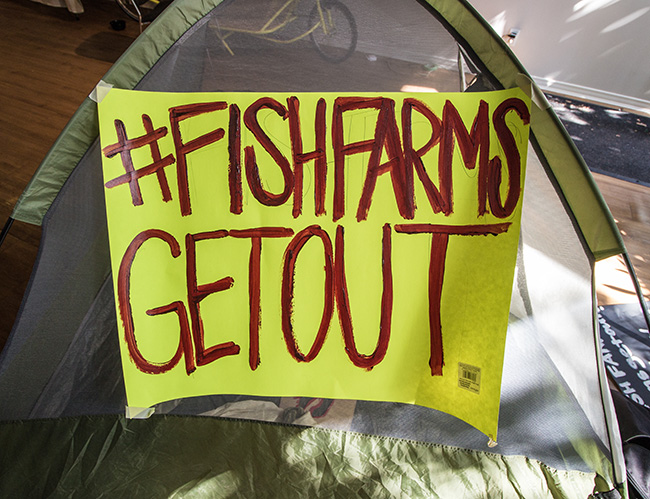 #FISHFARMS
GETOUT